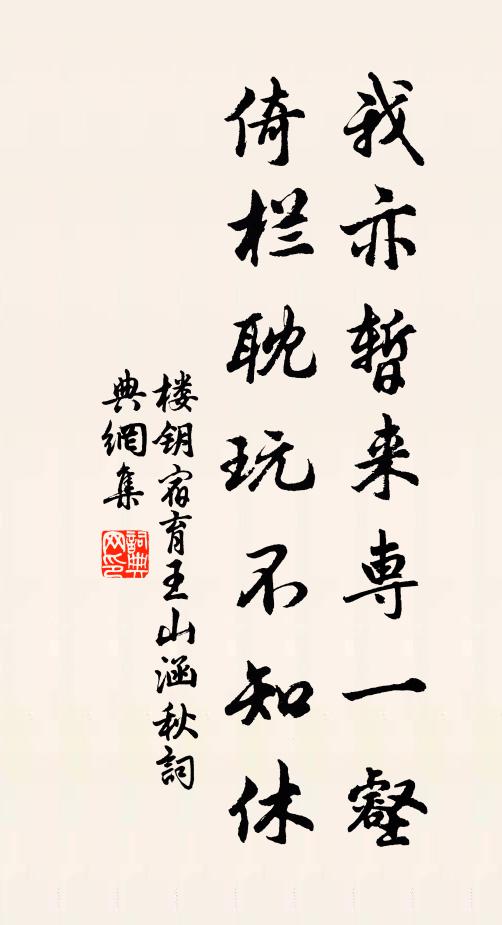 我亦暂来専一壑
倚栏耽玩不知休
楼钥宿育王山涵秋詞
典網集
詞典网印